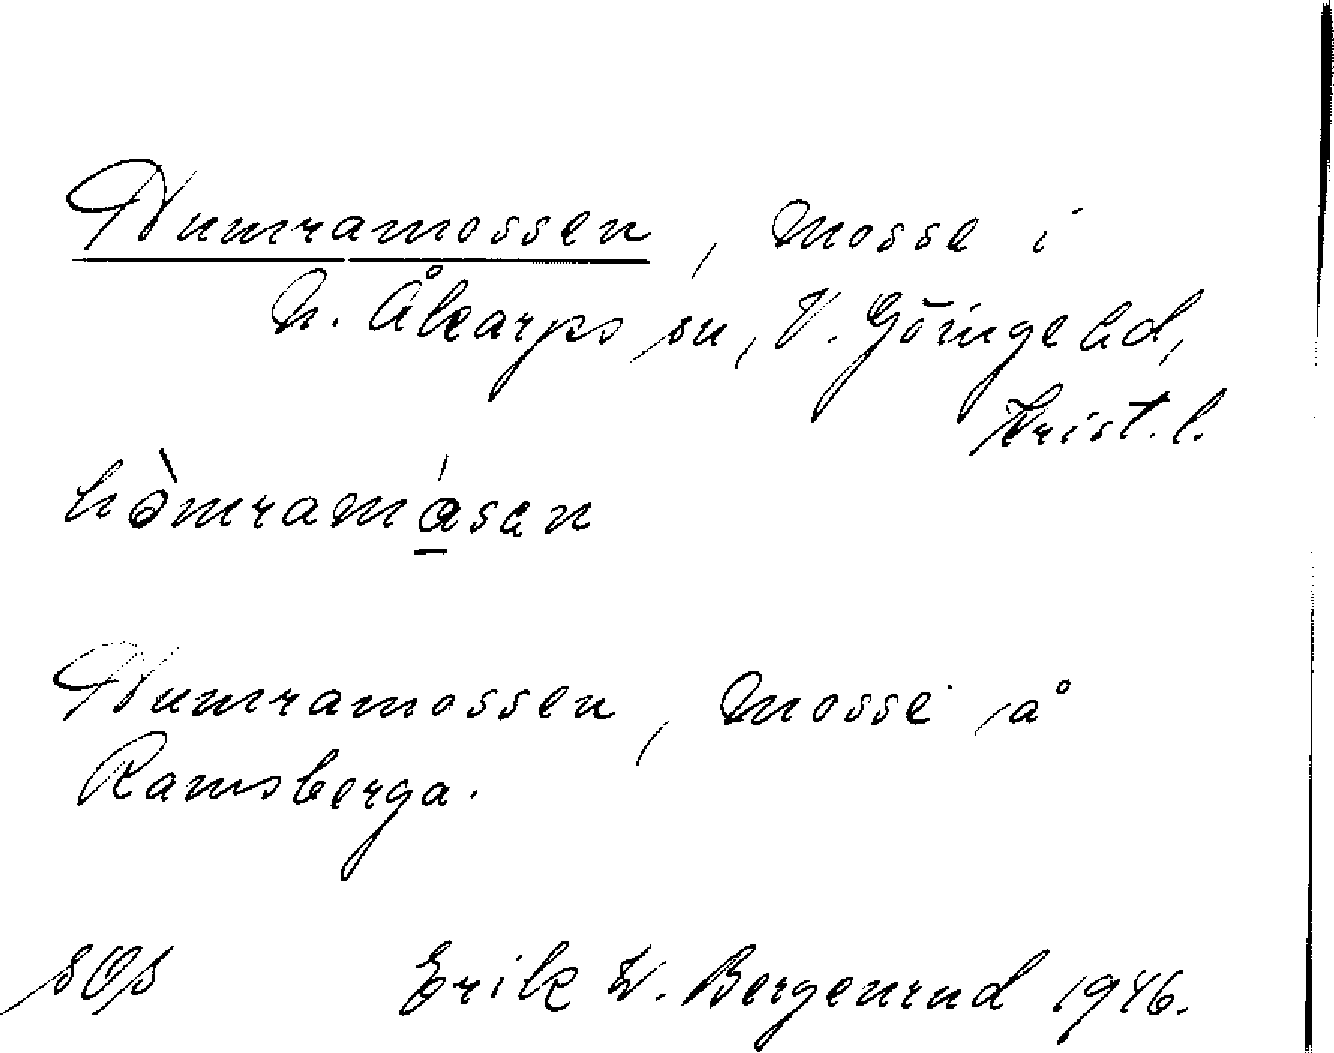 Humramossen, mosse i
N. Åkarps sn, V. Göinge hd,
Krist. l.
hòmramásen
Humramossen, mosse å
Ramsberga.
SOS Erik W. Bergenrud 1946.